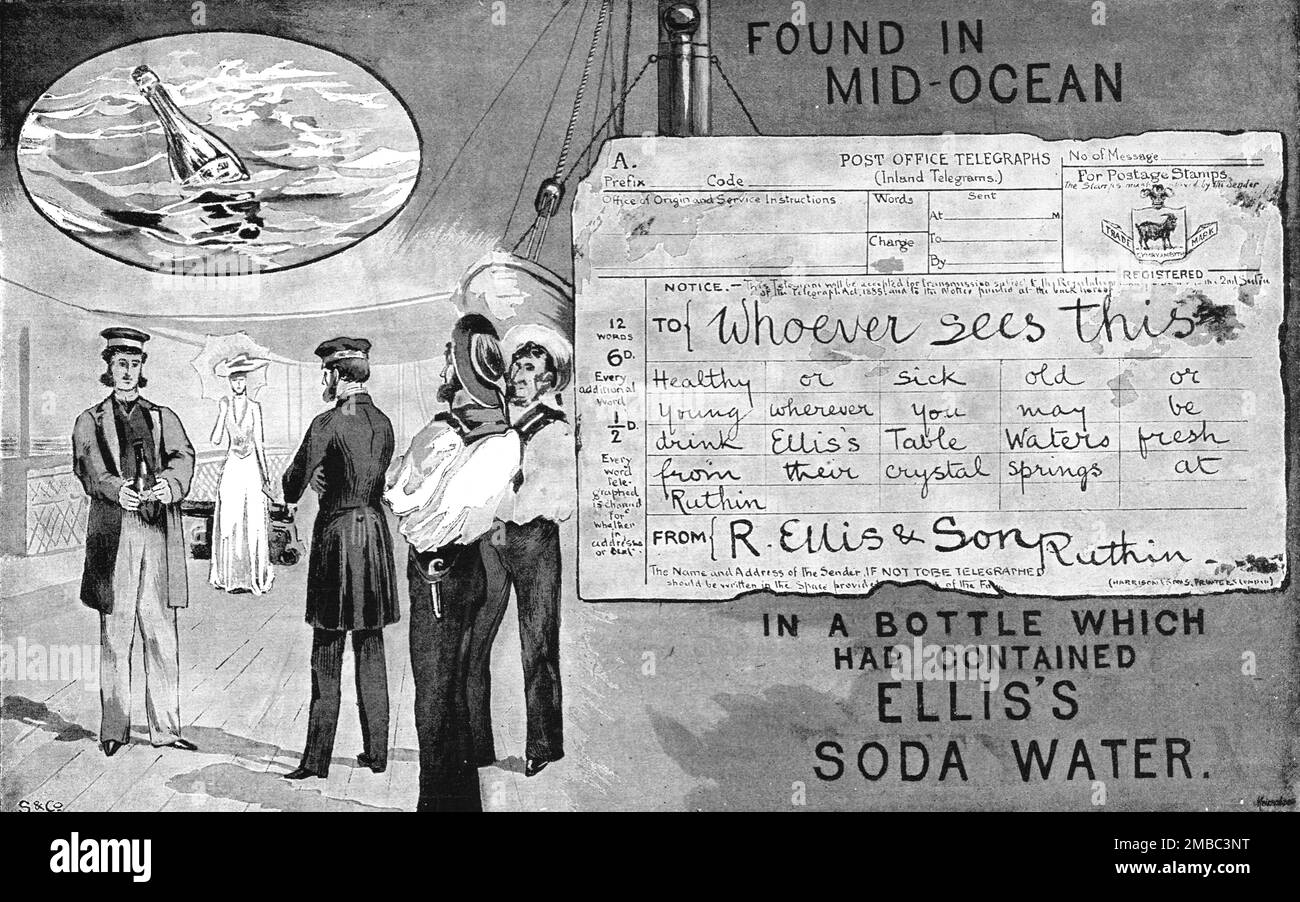 FOUND IN
MID-OCEAN
A.
POST OFFICE TELEGRAPHS
No of Message
Prefix Code
(Inland Telegrams.)
For Postage Stamps.
The Stamps must by the Sender
Office of Origin and Service Instructions
Words
Sent
At M
Charge
To
By
TRADE MARK
REGISTERED
NOTICE.— This Telegram will be accepted for transmission subject to the Regulations
of the Telegraph Act, 1885, and to the Notice printed at the back hereof
12
WORDS
6D.
Every
additional
Word
½D.
Every
word
tele-
graphed
is charged
for
whether
in
address
or text.
TO { Whoever sees this
Healthy or sick old or
Young wherever you may be
drink Ellis's Table Waters fresh
from their crystal springs at
Ruthin
FROM { R. Ellis & Son Ruthin
The Name and Address of the Sender, IF NOT TO BE TELEGRAPHED
should be written in the Space provided of the
(HARRISON & SONS, PRINTERS LONDON)
IN A BOTTLE WHICH
HAD CONTAINED
ELLIS'S
SODA WATER.
S & Co.
alamy
Image ID: 2MBC3NT
www.alamy.com